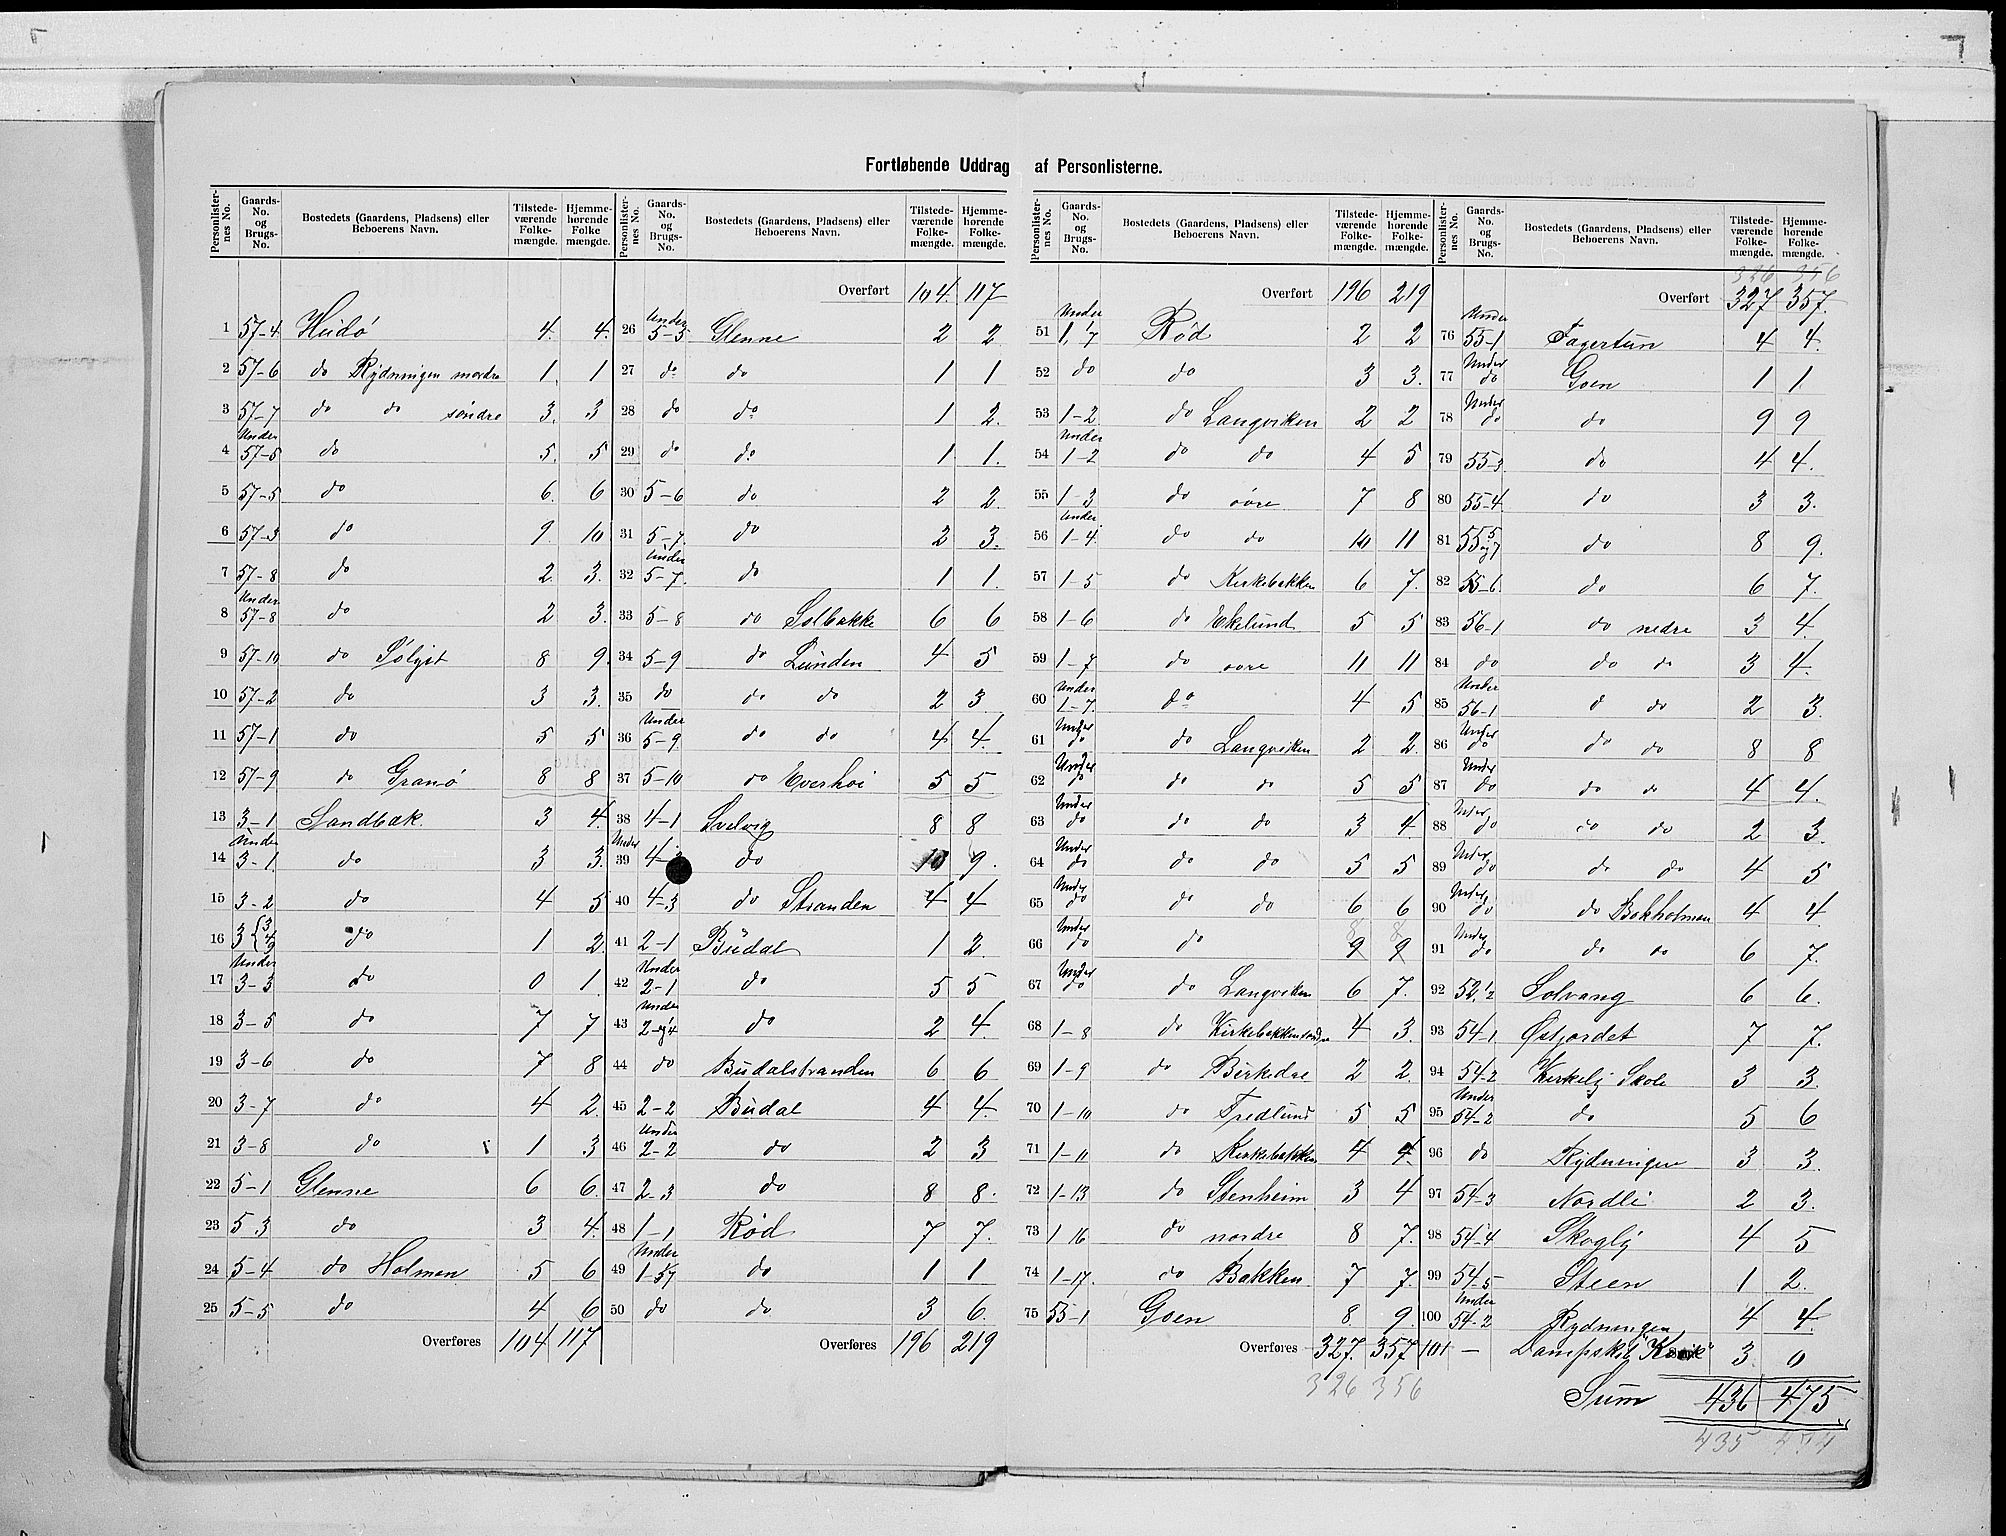 Fortløbende Uddrag af Personlisterne.
Personlisternes No. | Gaards-No. og Brugs-No. | Bostedets (Gaardens, Pladsens) eller Beboerens Navn. | Tilstedeværende Folkemængde. | Hjemmehørende Folkemængde.
1 57-4 Hudø 4 4
2 57-6 do Rydningen nordre 1 1
3 57-7 do do søndre 3 3
4 Under 57-5 do 5 5
5 57-5 do 6 6
6 57-3 do 9 10
7 57-8 do 2 3
8 Under 57-8 do 2 3
9 57-10 do Sølyst 8 9
10 57-2 do 3 3
11 57-1 do 5 5
12 57-9 do Granø 8 8
13 3-1 Sandbæk 3 4
14 Under 3-1 do 3 3
15 3-2 do 4 5
16 3 {3 4 9 do 1 2
17 Under 3-3 do 0 1
18 3-5 do 7 7
19 3-6 do 7 8
20 3-7 do 4 2
21 3-8 do 1 3
22 5-1 Glenne 6 6
23 5 3 do 3 4
24 5-4 do Holmen 5 6
25 5-5 do 4 6
Overføres 104 117
Overført 104 117
26 Under 5-5 Glenne 2 2
27 do do 1 1
28 do do 1 2
29 do do 1 1
30 5-6 do 2 2
31 5-7 do 2 3
32 Under 5-7 do 1 1
33 5-8 do Solbakke 6 6
34 5-9 do Lunden 4 5
35 do do do 2 3
36 Under 5-9 do do 4 4
37 5-10 do Everhøi 5 5
38 4-1 Svelvig 8 8
39 Under 4-3 do 10 9
40 4-3 do Stranden 4 4
41 2-1 Budal 1 2
42 Under 2-1 do 5 5
43 Under 2-1 og 4 do 2 4
44 do Budalstranden 6 6
45 2-2 Budal 4 4
46 Under 2-2 do 2 3
47 2-3 do 8 8
48 1-1 Rød 7 7
49 Under 1-1/57 do 1 1
50 do do 3 6
Overføres 196 219
Overført 196 219
51 Under 1, 1/7 Rød 2 2
52 do do 3 3
53 1-2 do Langviken 2 2
54 Under 1-2 do do 4 5
55 1-3 do øvre 7 8
56 Under 1-4 do do 10 11
57 1-5 do Kirkebakken 6 7
58 1-6 do Ekelund 5 5
59 1-7 do øvre 11 11
60 Under 1-7 do 4 5
61 Under do do Langviken 2 2
62 Under do do do 5 5
63 Under do do do 3 4
64 Under do do do 5 5
65 Under do do do 6 6
66 Under do do 9 9 8 8
67 Under do do Langviken 6 7
68 1-8 do Kirkebakken søndre 4 3
69 1-9 do Birkedal 2 2
70 1-10 do Fredlund 5 5
71 1-11 do Kirkebakken 4 4
72 1-13 do Stenheim 3 4
73 1 16 do nordre 8 7
74 1-17 do Bakken 7 7
75 55-1 Goen 8 9
Overføres 327 357
326 356
326 356
Overført 327 357
76 Under 55-1 Fagertun 4 4
77 Under do Goen 1 1
78 Under do do 9 9
79 55-3 do 4 4
80 55-4 do 3 3
81 55 5 og 7 do 8 9
82 55-6 do 6 7
83 56-1 do nedre 3 4
84 do do do 3 4
85 Under 56-1 d do 2 3
86 Under do do do 8 8
87 Under do do do 4 4
88 Under do do do 2 3
89 Under do do do 4 5
90 Under do do Bokholmen 4 4
91 Under do do do 6 7
92 52, 1/2 Solvang 6 6
93 54-1 Østjordet 7 7
94 54-2 Kirkelig Skole 3 3
95 Under 54-2 do 5 6
96 do Rydningen 3 3
97 54-3 Nordli 2 3
98 54-4 Skogly 4 5
99 54-5 Steen 1 2
100 Under 54-2 Rydningen 4 4
101 — Dampskib 3 0
Sum 436 475
435 474